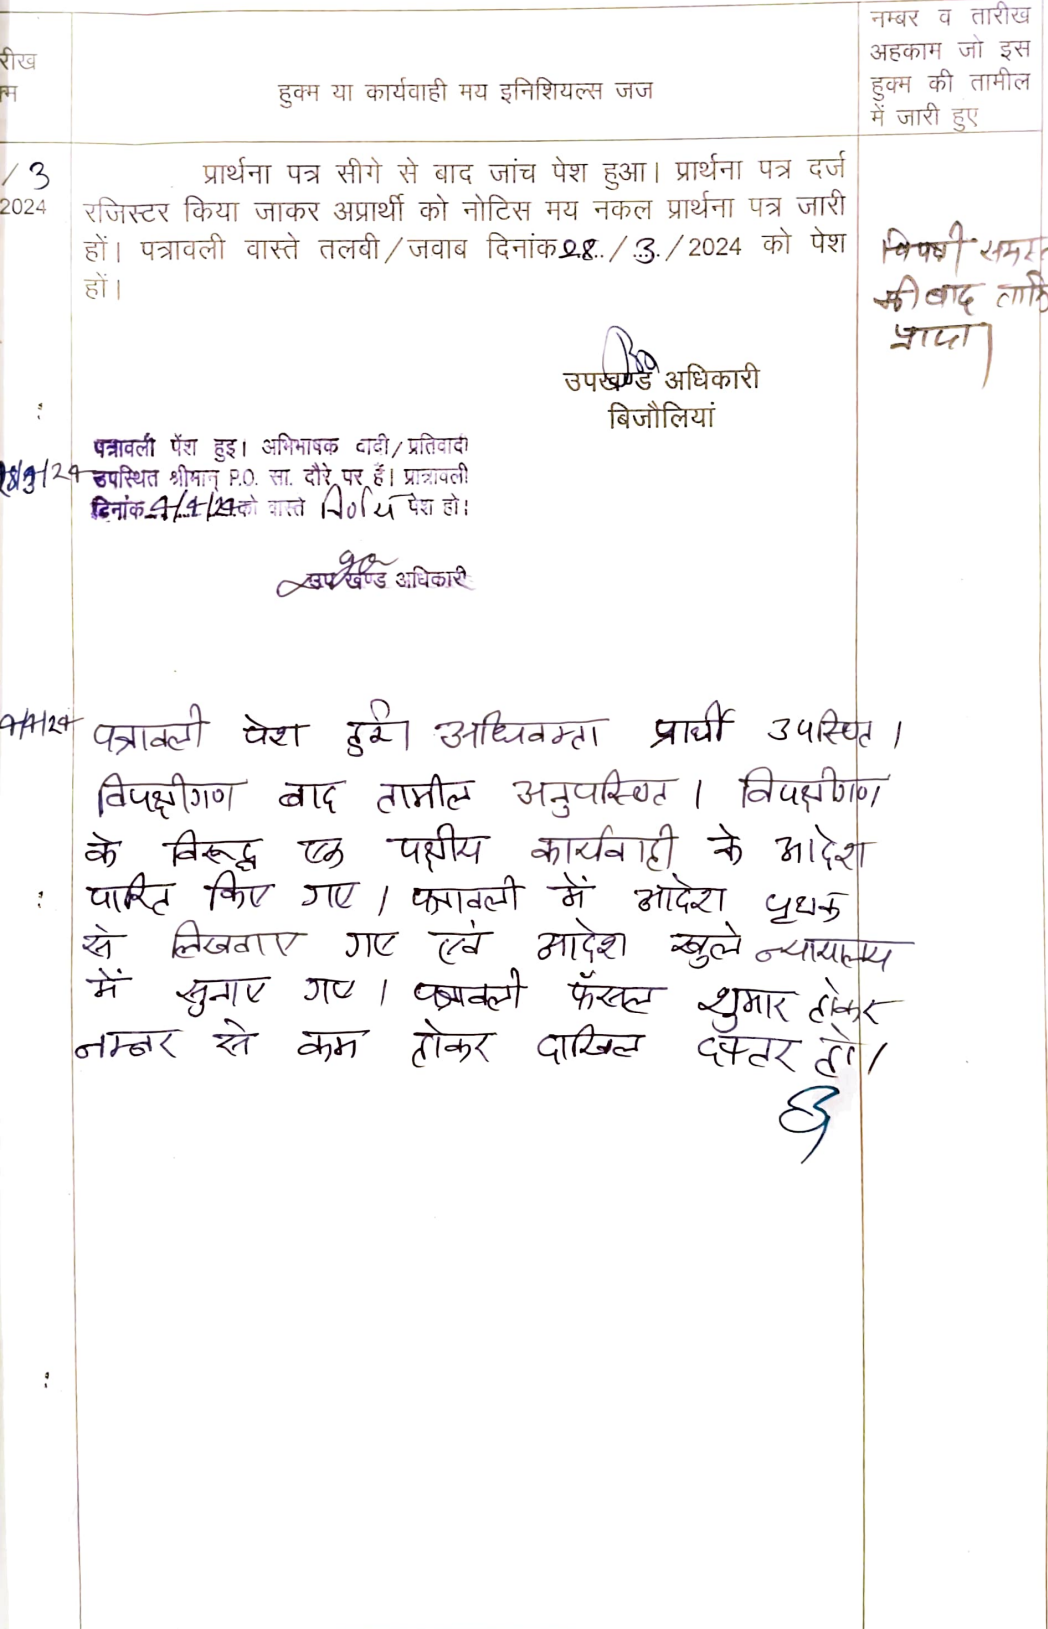 रीख
म
हुक्म या कार्यवाही मय इनिशियल्स जज
नम्बर व तारीख
अहकाम जो इस
हुक्म की तामील
में जारी हुए
/ 3
2024
प्रार्थना पत्र सीगे से बाद जांच पेश हुआ। प्रार्थना पत्र दर्ज
रजिस्टर किया जाकर अप्रार्थी को नोटिस मय नकल प्रार्थना पत्र जारी
हों। पत्रावली वास्ते तलबी/जवाब दिनांक 28./.3./2024 को पेश
हों।
विपक्षी समस्
की बाद तामि
प्राप्त।
उपखण्ड अधिकारी
बिजौलियां
28/3/24
पत्रावली पेंश हुइ। अभिभाषक वादी/प्रतिवादी
उपस्थित श्रीमान् P.O. सा. दौरे पर हैं। प्रात्रावली
दिनांक 4/4/24 को वास्ते निर्णय पेश हो।
उप खण्ड अधिकारी
4/4/24
पत्रावली पेश हुई। अधिवक्ता प्रार्थी उपस्थित।
विपक्षीगण बाद तामील अनुपस्थित। विपक्षीगण
के विरूद्ध एक पक्षीय कार्यवाही के आदेश
पारित किए गए। पत्रावली में आदेश पृथक
से लिखवाए गए एवं आदेश खुले न्यायालय
में सुनाए गए। पत्रावली फैंसल शुमार होकर
नम्बर से कम होकर दाखिल दफ्तर हो।